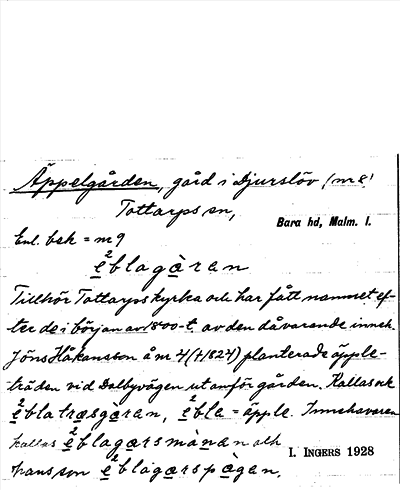 Äppelgården, gård i Djurslöv (nr 8)
Tottarps sn,
Bara hd, Malm. l.
Enl. bek = nr 9
è²blagàran
Tillhör Tottarps kyrka och har fått namnet ef-
ter de i början av 1800-t. av den dåvarande inneh.
Jöns Håkansson å nr 4 (†1824) planterade äpple-
träden vid Dalbyvägen utanför gården. Kallas ock
è²blatræsgàran, è²bla = äpple. Innehavaren
kallas è²blagàrsmànan och
hans son è²blagàrspàgen.
I. INGERS 1928